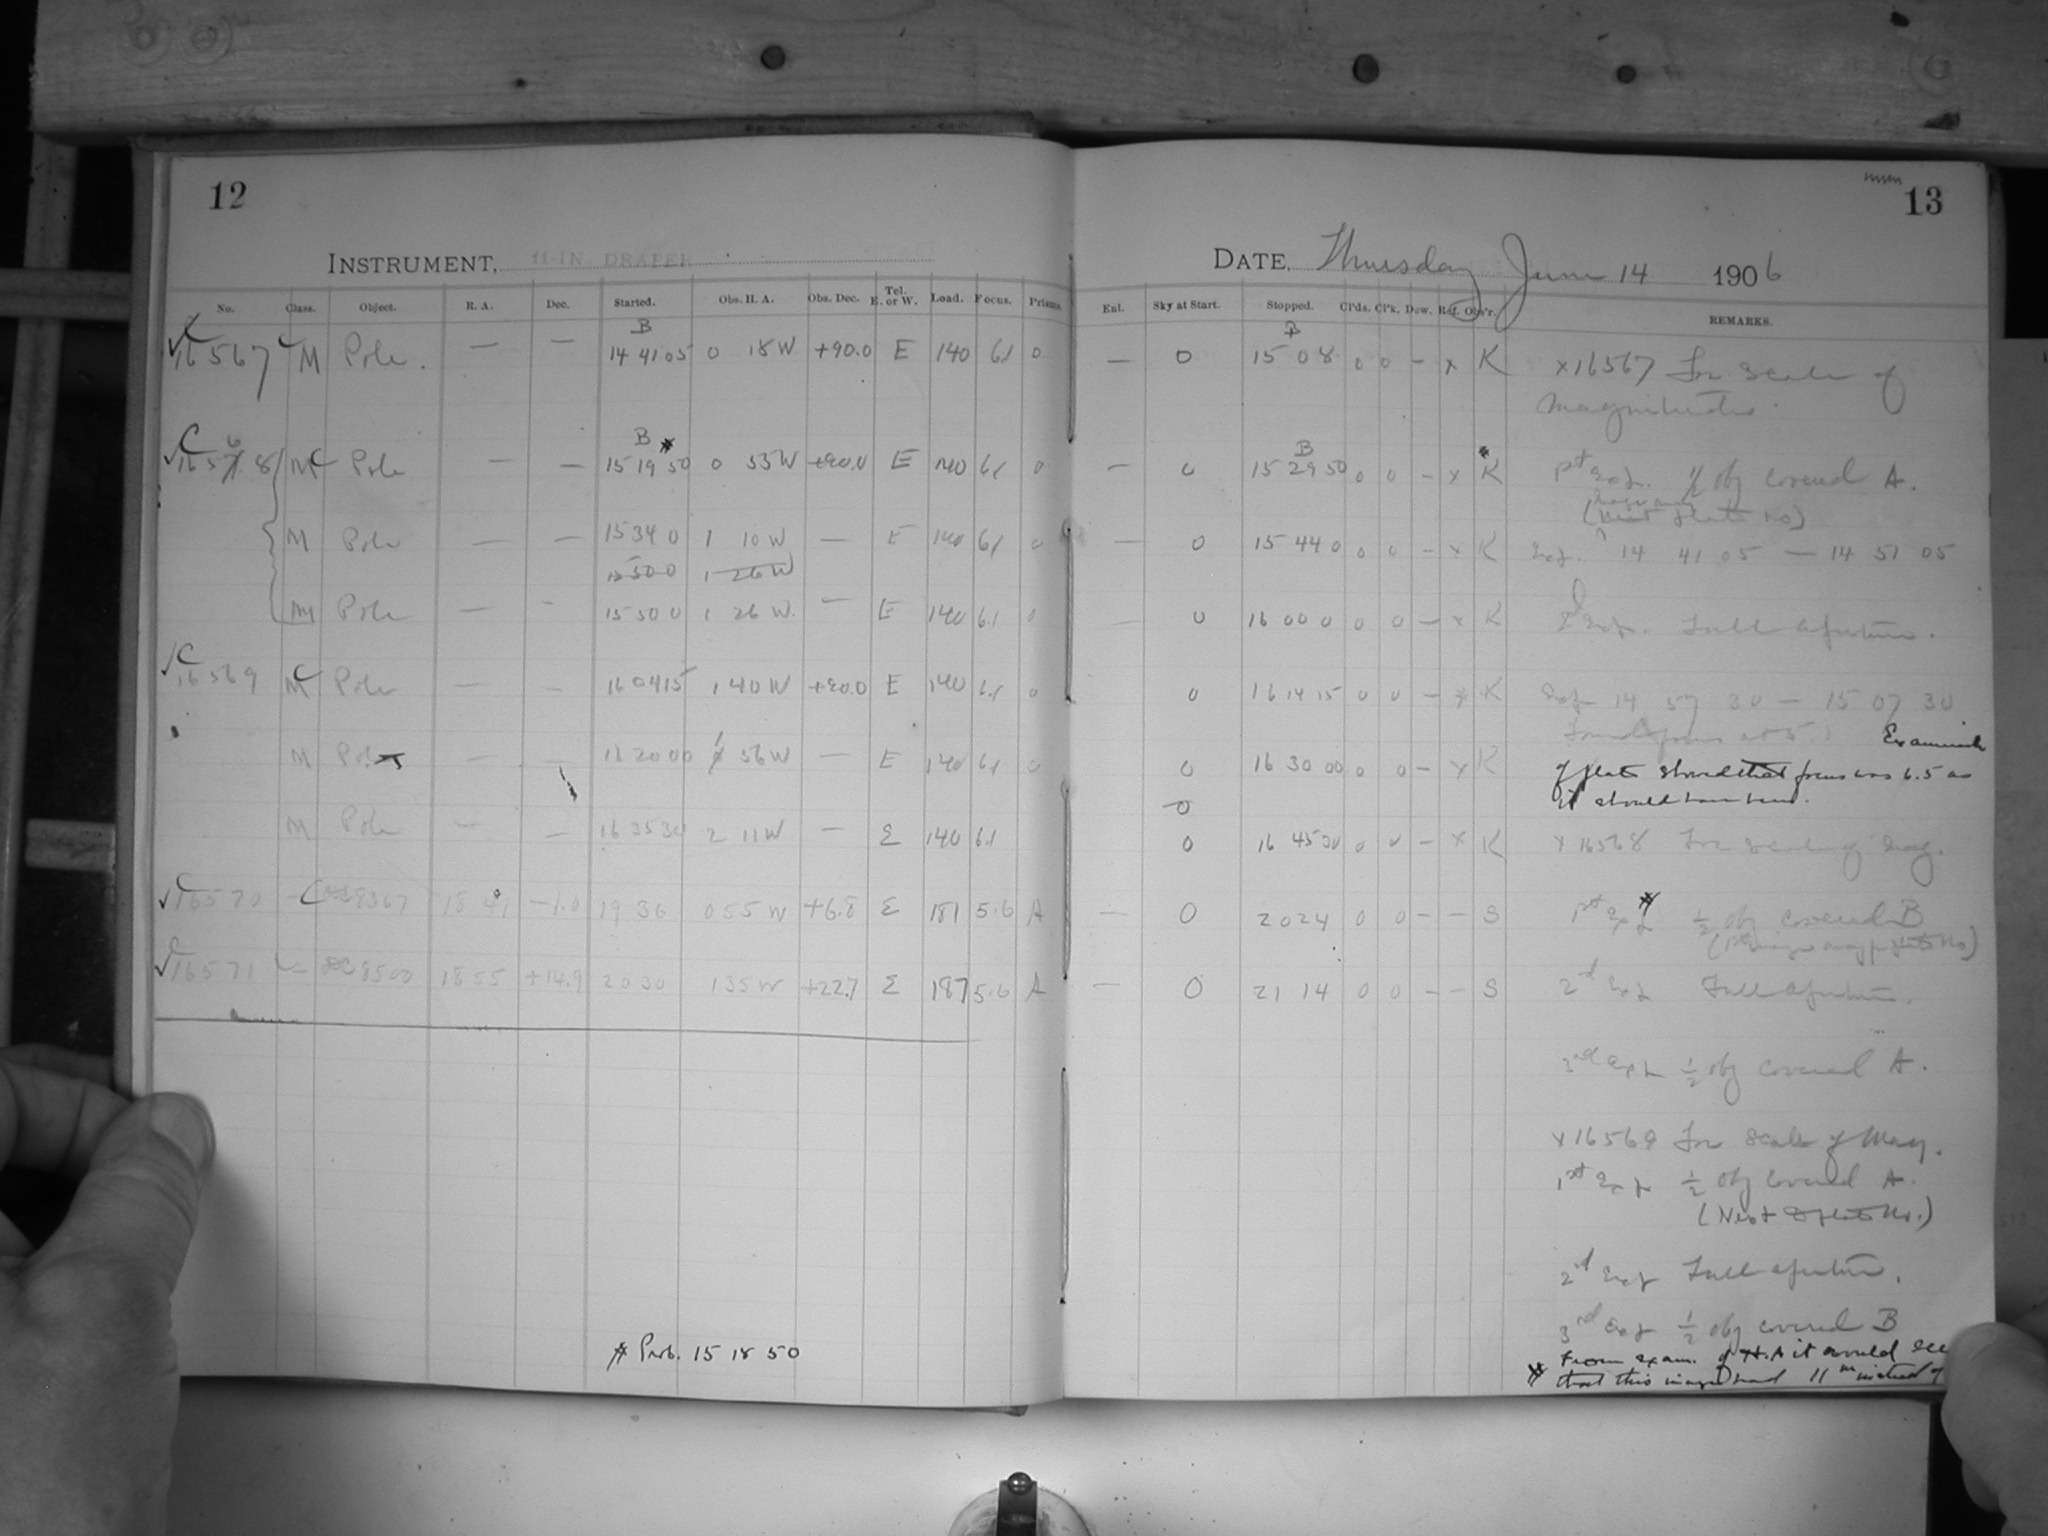 12
INSTRUMENT, 11-IN. DRAPER
No. Class. Object. R. A. Dec. Started. Obs. H. A. Obs. Dec. Tel. E. or W. Load. Focus. Prisms.
B
16567 M Pole. — — 14 41 05 0 18 W +90.0 E 140 6.1 0
B *
16568 MC Pole — — 15 19 50 0 55 W +90.0 E 140 6.1 0
M Pole — — 15 34 0 1 10 W — E 140 6.1 0
15 50 0 1 26 W
M Pole — - 15 50 0 1 26 W. — E 140 6.1 0
16569 MC Pole — — 16 04 15 1 40 W +90.0 E 140 6.1 0
M Pole — — 16 20 00 1 56 W — E 140 6.1 0
M Pole — — 16 35 30 2 11 W — E 140 6.1
16570 C DC 8367 18 41 -1.0 19 36 0 55 W +6.8 E 181 5.6 A
16571 DC 8500 18 55 +14.9 20 30 1 35 W +22.7 E 187 5.6 A
* Prob. 15 18 50
13
DATE, Thursday June 14 1906
Enl. Sky at Start. Stopped. Cl'ds. Cl'k. Dew. Ref. Obs'r. REMARKS.
B
— 0 15 08 0 0 - x K x16567 For scale of
magnitudes.
B *
— 0 15 29 50 0 0 - x K 1st Exp. 1/2 obj covered A.
(Next plate no)
— 0 15 44 0 0 0 - x K Exp. 14 41 05 — 14 51 05
— 0 16 00 0 0 0 - x K 2 Exp. Full aperture.
0 16 14 15 0 0 - x K Exp 14 57 30 — 15 07 30
Found focus at 5.1 Examination
0 16 30 00 0 0 - x K of plate showed that focus was 6.5 as
0 it should have been.
0 16 45 30 0 0 - x K x 16568 For scale of Mag.
— 0 20 24 0 0 - - S 1st Exp 1/2 obj covered B
— 0 21 14 0 0 - - S 2d Exp Full aperture.
3rd Exp 1/2 obj covered A.
x16569 For scale of Mag.
1st Exp 1/2 obj covered A.
(Next plate No.)
2d Exp Full aperture.
3rd Exp 1/2 obj covered B
From exam. of H.A it would see
* that this image had 11m instead of